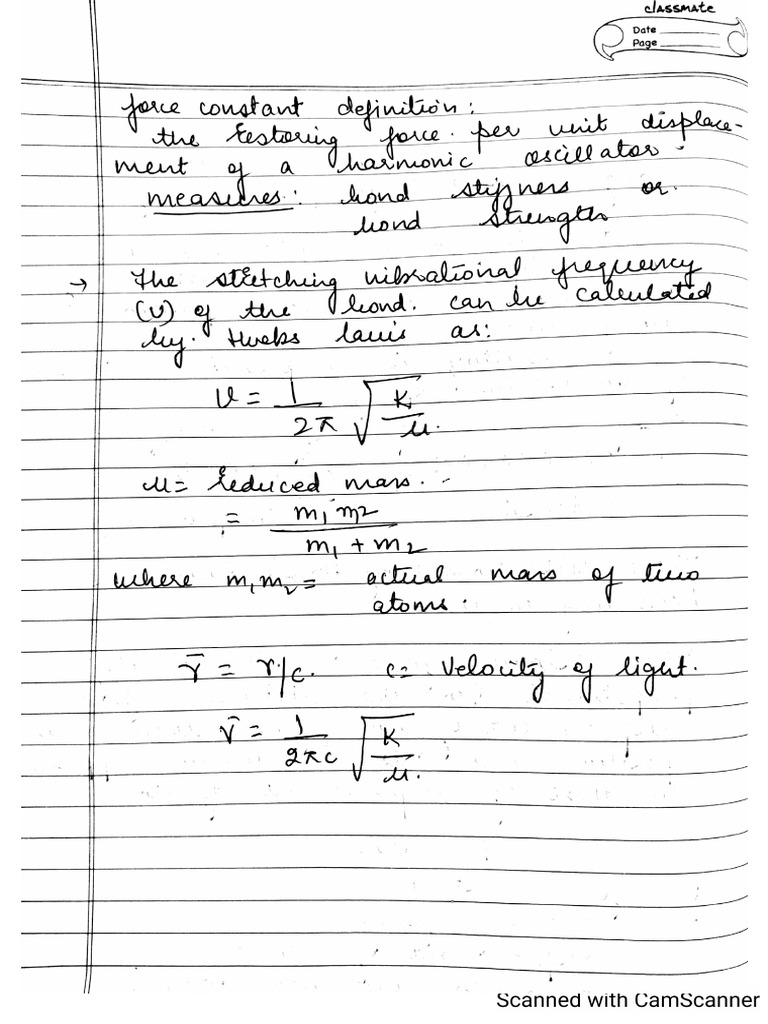 classmate
Date
Page
force constant definition:
the restoring force per unit displace-
ment of a harmonic oscillator.
measures: bond stiffness or
bond strength
→ The stretching vibrational frequency
(ν) of the bond. can be calculated
by. Hooks law's as:
ν = 1/2π √K/μ.
μ = reduced mass.
= m₁ m₂ / m₁ + m₂
where m₁ m₂ = actual mass of two
atoms.
ν̄ = ν/c. c = Velocity of light.
ν̄ = 1/2πc √K/μ.
Scanned with CamScanner